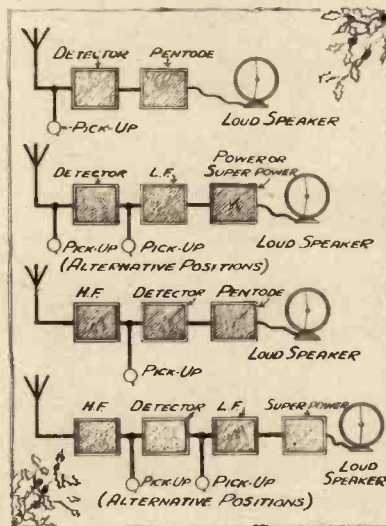 DETECTOR PENTODE
PICK-UP
LOUD SPEAKER
DETECTOR L.F. POWER OR
SUPER POWER
PICK-UP PICK-UP LOUD SPEAKER
(ALTERNATIVE POSITIONS)
H.F. DETECTOR PENTODE
LOUD SPEAKER
PICK-UP
H.F. DETECTOR L.F. SUPER POWER
LOUD
SPEAKER
PICK-UP PICK-UP
(ALTERNATIVE POSITIONS)